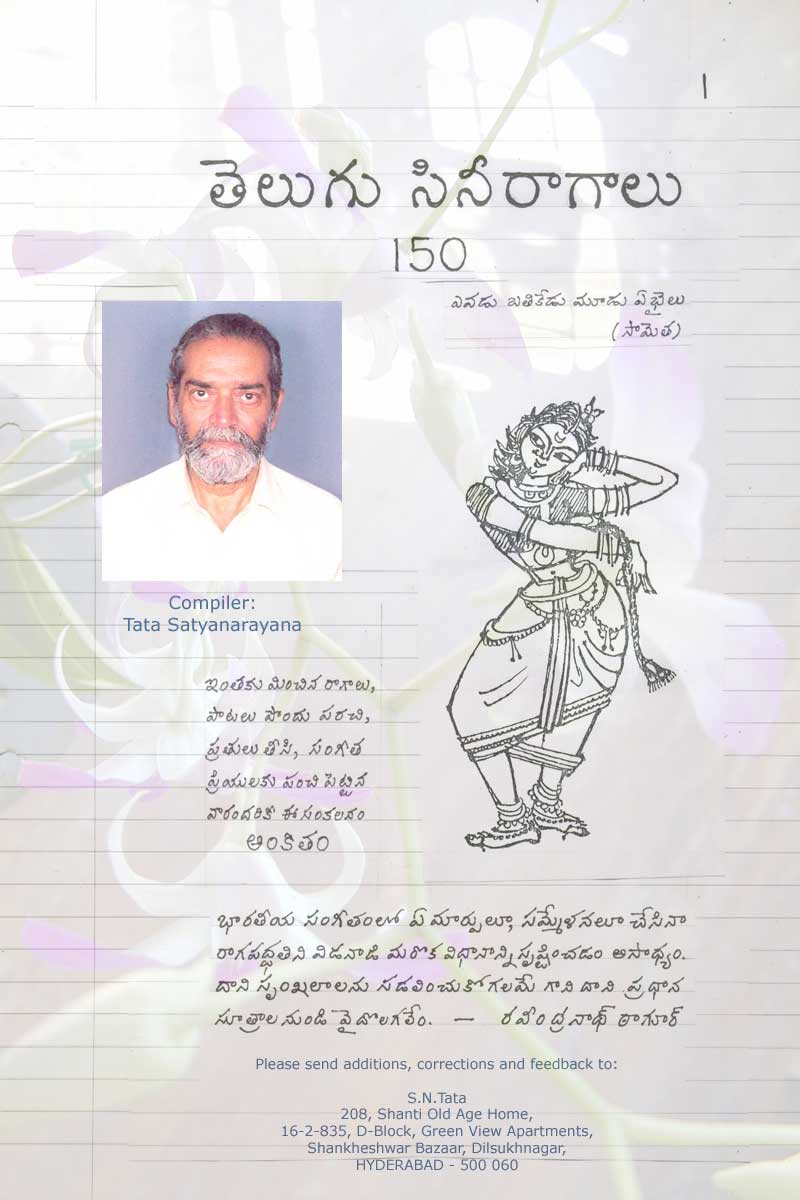 1
తెలుగు సినీరాగాలు
150
ఎవడు బతికేడు మూడు ఏభైలు
(సామెత)
Compiler:
Tata Satyanarayana
ఇంతకు మించిన రాగాలు,
పాటలు పొందు పరచి,
ప్రతులు తీసి, సంగీత
ప్రియులకు పంచి పెట్టిన
వారందరికీ ఈ సంకలనం
అంకితం
భారతీయ సంగీతంలో ఏ మార్పులూ, సమ్మేళనలూ చేసినా
రాగపద్ధతిని విడనాడి మరొక విధానాన్ని సృష్టించడం అసాధ్యం.
దాని సృంఖలాలను సడలించుకోగలమే గాని దాని ప్రధాన
సూత్రాల నుండి వైదొలగలేం. — రవీంద్రనాథ్ ఠాగూర్
Please send additions, corrections and feedback to:
S.N.Tata
208, Shanti Old Age Home,
16-2-835, D-Block, Green View Apartments,
Shankheshwar Bazaar, Dilsukhnagar,
HYDERABAD - 500 060